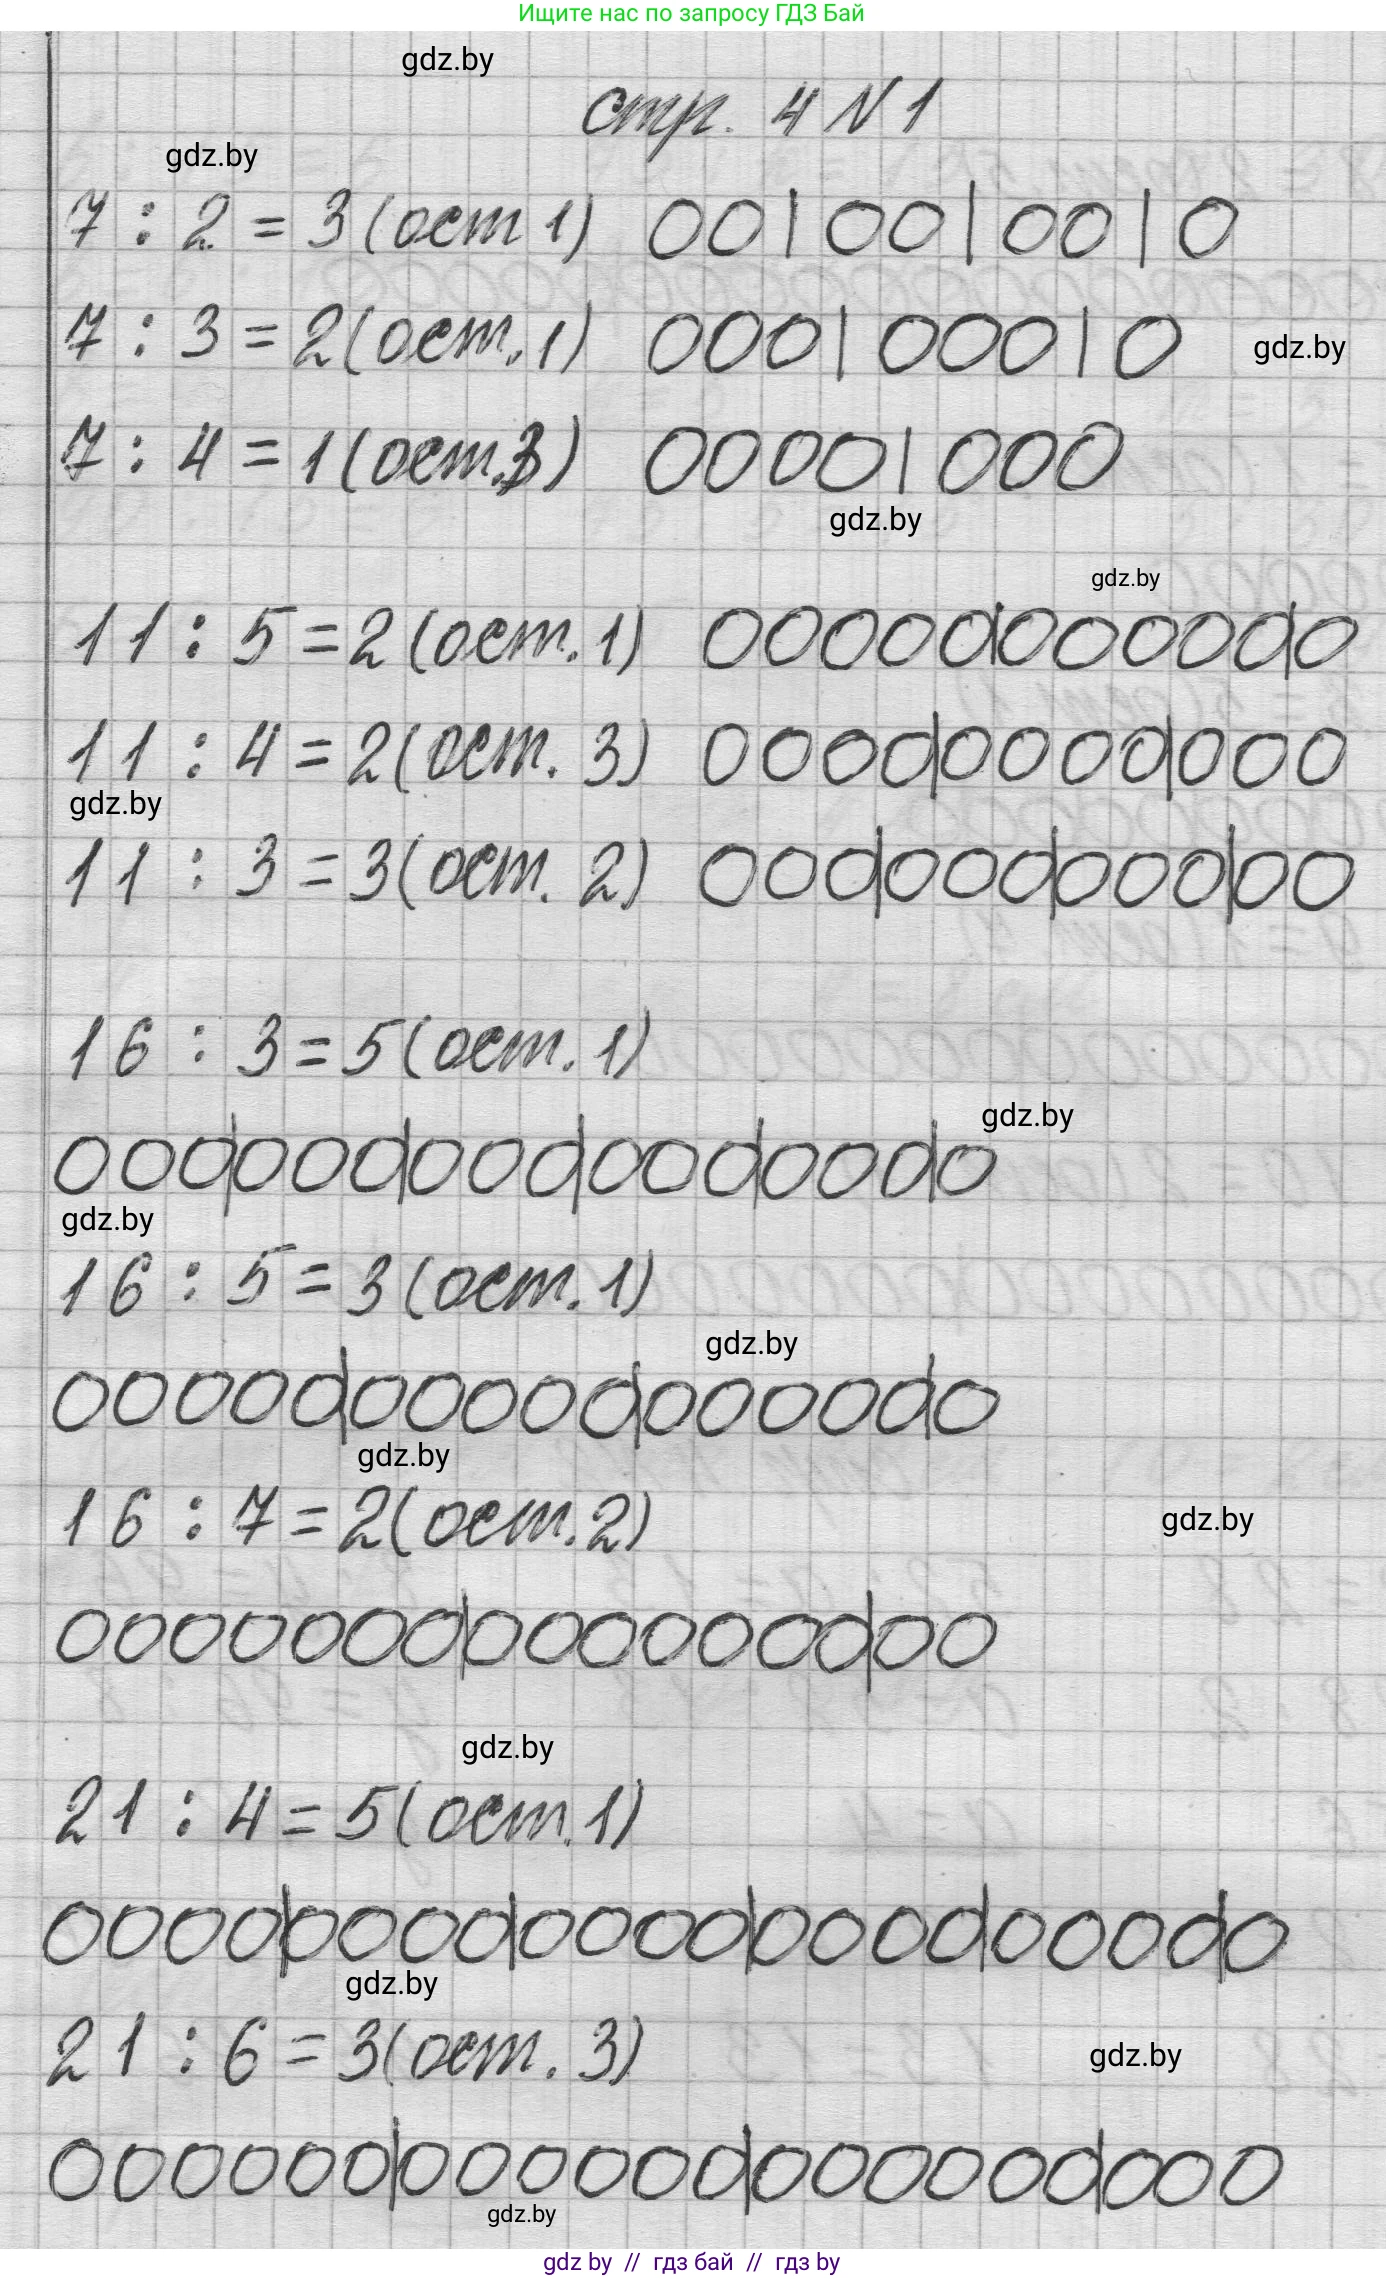 Ищите нас по запросу ГДЗ Бай
gdz.by
стр. 4 N 1
gdz.by
7 : 2 = 3 (ост 1) 00|00|00|0
7 : 3 = 2 (ост. 1) 000|000|0
gdz.by
7 : 4 = 1 (ост. 3) 0000|000
gdz.by
gdz.by
11 : 5 = 2 (ост. 1) 00000|00000|0
11 : 4 = 2 (ост. 3) 0000|0000|000
gdz.by
11 : 3 = 3 (ост. 2) 000|000|000|00
16 : 3 = 5 (ост. 1)
gdz.by
000|000|000|000|000|0
gdz.by
16 : 5 = 3 (ост. 1)
gdz.by
00000|00000|00000|0
gdz.by
16 : 7 = 2 (ост. 2)
gdz.by
0000000|0000000|00
gdz.by
21 : 4 = 5 (ост. 1)
0000|0000|0000|0000|0000|0
gdz.by
21 : 6 = 3 (ост. 3)
gdz.by
000000|000000|000000|000
gdz.by
gdz by // гдз бай // гдз by